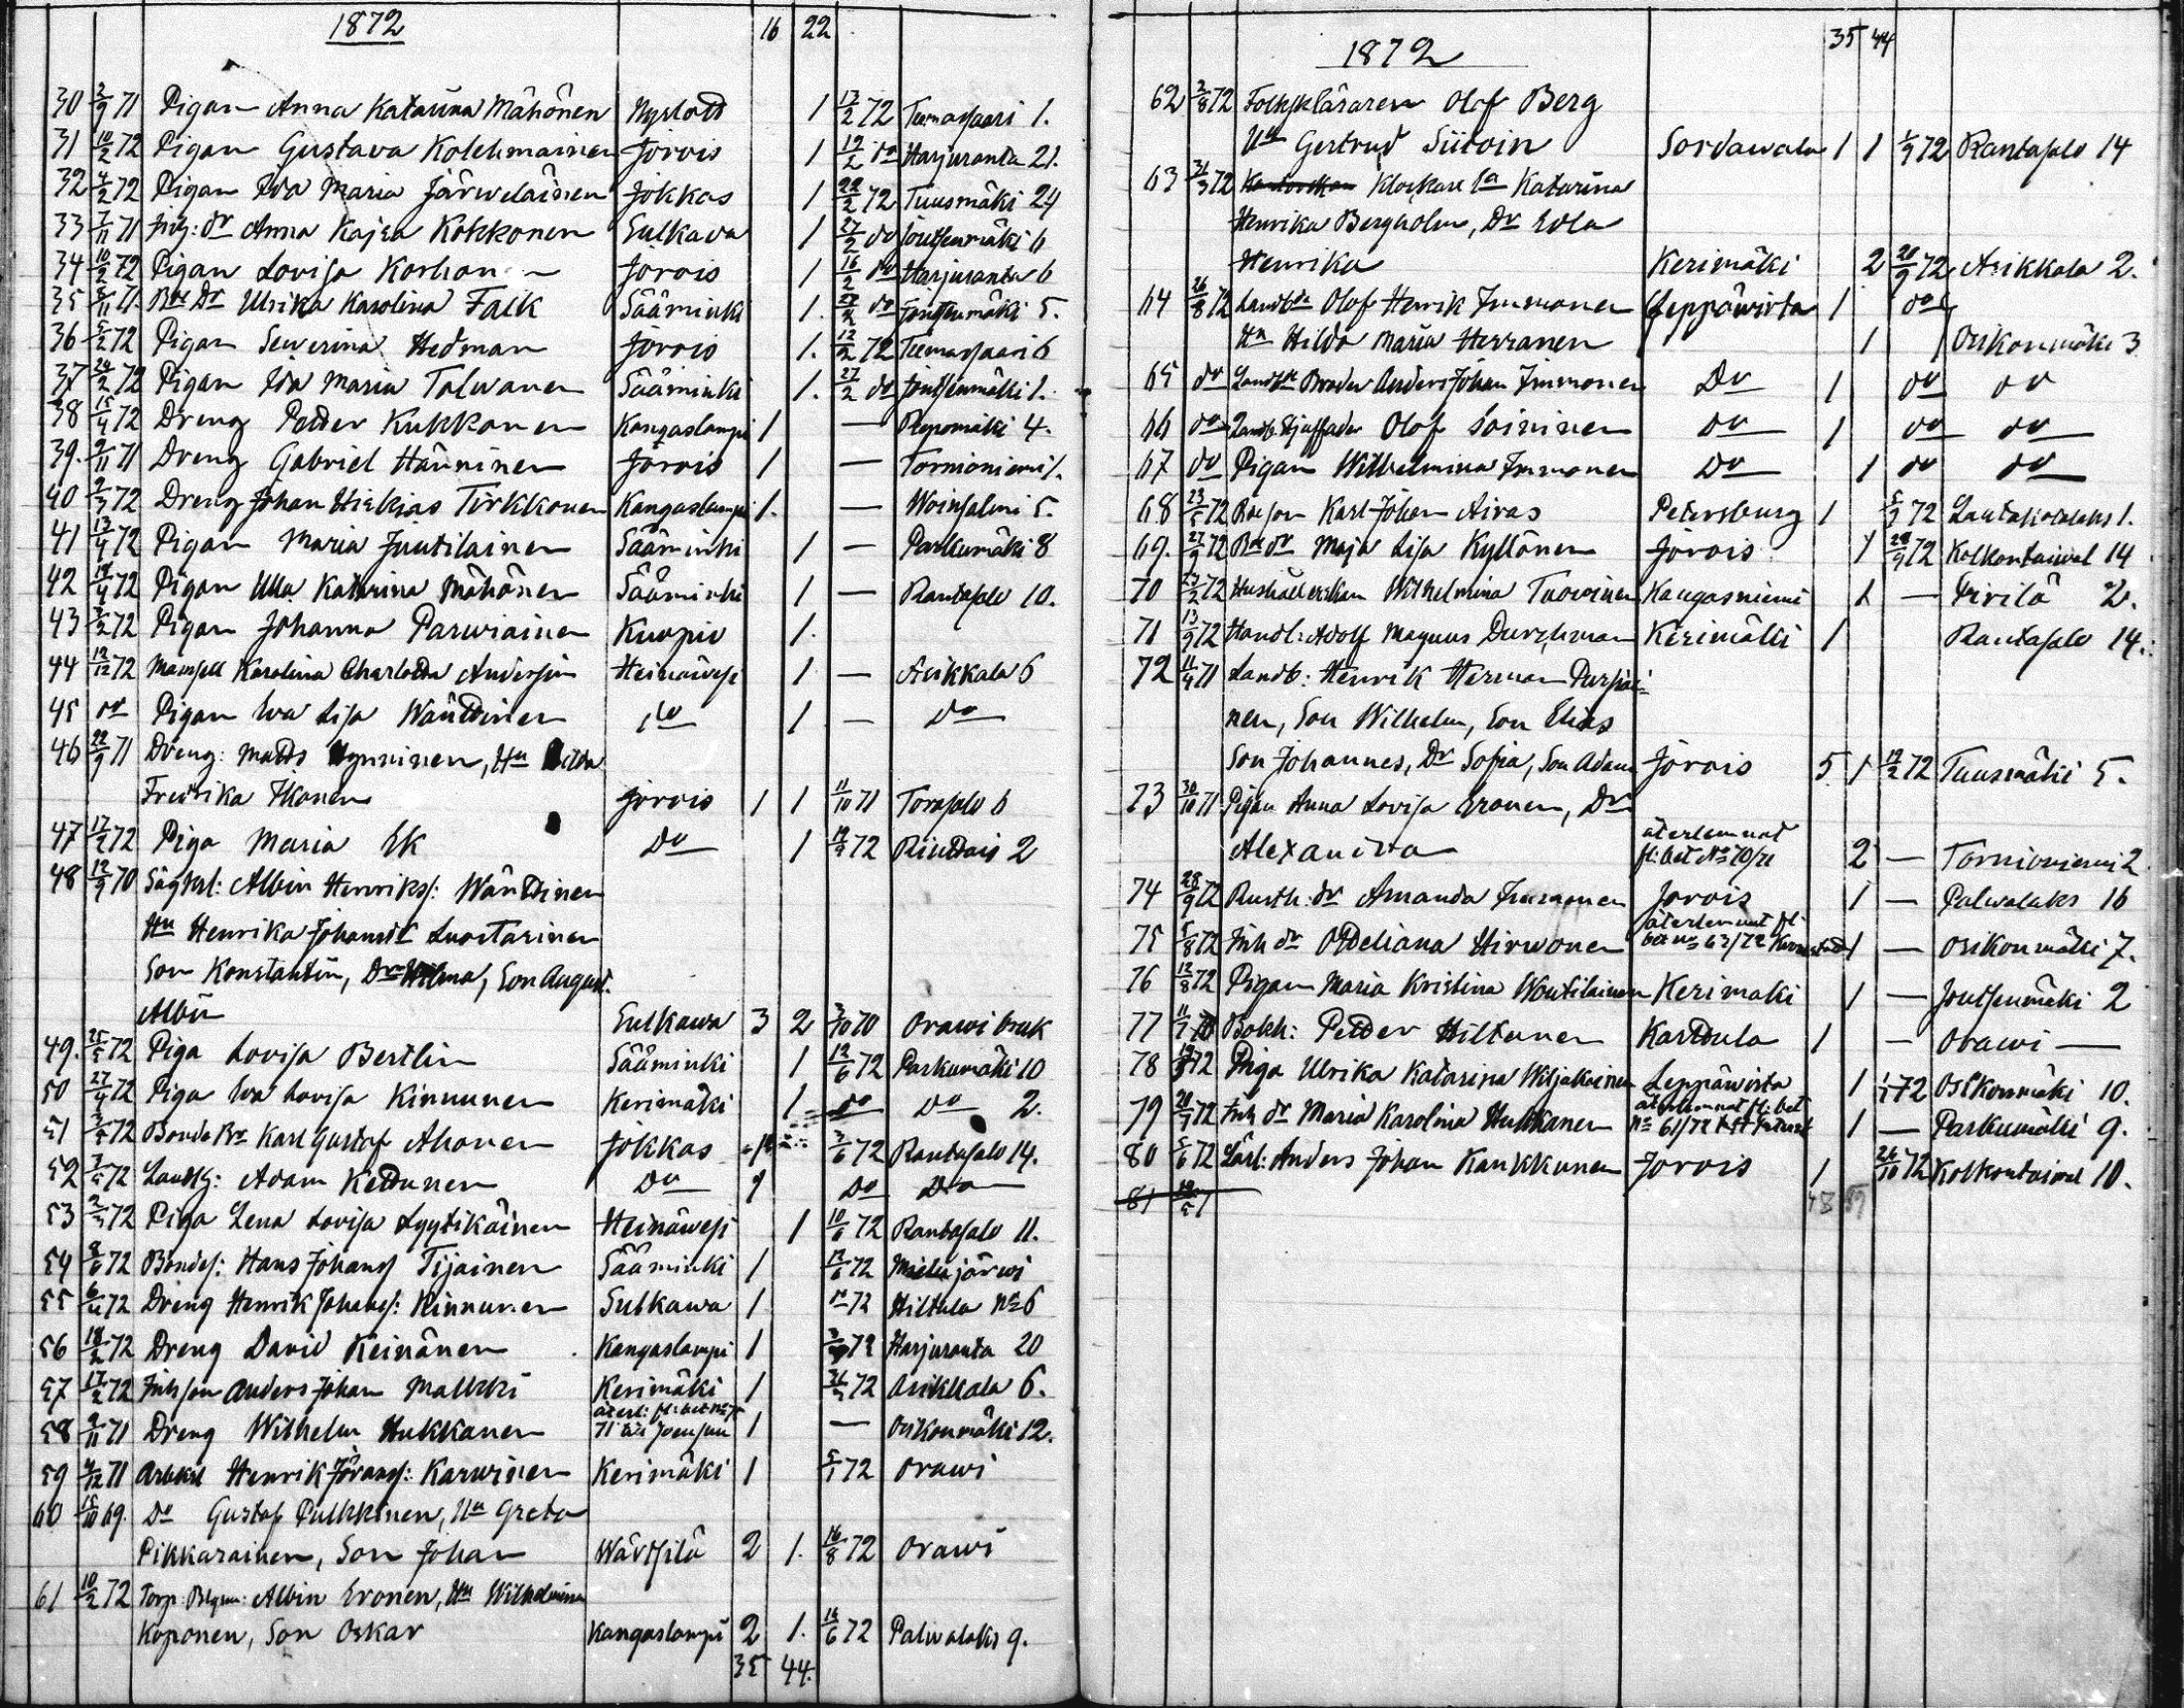 1872
16 22
30 2/9 71 Pigan Anna Katarina Mähönen Nyslott 1 13/2 72 Teemassaari 1.
31 10/2 72 Pigan Gustava Kolehmainen Jorois 1 19/2 do Harjuranta 21.
32 4/2 72 Pigan Ida Maria Järweläinen Jokkas 1 22/2 72 Tuusmäki 24
33 7/11 71 Inh: dr Anna Kajsa Kokkonen Sulkava 1 27/2 do Joutsenmäki 6
34 10/2 72 Pigan Lovisa Korhonen Jorois 1 16/2 do Harjuranta 6
35 5/11 71. Bde Dr Ulrika Karolina Falk Sääminki 1. 27/2 do Joutsenmäki 5.
36 5/2 72 Pigan Sewerina Hedman Jorois 1. 12/2 72 Teemassaari 6
37 24/2 72 Pigan Ida Maria Talwanen Sääminki 1. 27/2 do Joutsenmäki 1.
38 15/4 72 Dreng Petter Kukkonen Kangaslampi 1 — Repomäki 4.
39. 9/11 71 Dreng Gabriel Hänninen Jorois 1 — Tornioniemi 1.
40 9/3 72 Dreng Johan Hiskias Tirkkonen Kangaslampi 1. — Woinsalmi 5.
41 13/4 72 Pigan Maria Juutilainen Sääminki 1 — Parkumäki 8
42 14/4 72 Pigan Ulla Katarina Mähönen Sääminki 1 — Rantasalo 10.
43 3/2 72 Pigan Johanna Parwiainen Kuopio 1.
44 12/12 72 Mamsell Karolina Charlotta Andersin Heinäwesi 1 — Asikkala 6
45 do Pigan Eva Lisa Wänttinen do 1 — Do
46 22/9 71 Dreng: Matts Hynninen, Hu Hilda
Fredrika Ikonen Jorois 1 1 11/10 71 Torasalo 6
47 17/2 72 Piga Maria Ek Do 1 19/2 72 Piuttais 2
48 12/9 70 Sågkrl: Albin Henrikss: Wänttinen
Hu Henrika Johansdr Luostarinen
Son Konstantin, Dr Hilma, Son August.
Albin Sulkawa 3 2 3/10 70 Orawi bruk
49. 25/5 72 Piga Lovisa Bertlin Sääminki 1 12/6 72 Parkumäki 10
50 27/4 72 Piga Eva Lovisa Kinnunen Kerimäki 1 do Do 2.
51 3/5 72 Bonde Br Karl Gustaf Ahonen Jokkas 1 3/6 72 Rantasalo 14.
52 3/5 72 Landbg: Adam Kettunen Do 1 Do Do
53 2/3 72 Piga Lena Lovisa Lyytikäinen Heinäwesi 1 10/6 72 Rantasalo 11.
54 8/6 72 Bondes: Hans Johans Tijainen Sääminki 1 12/6 72 järwi
55 6/4 72 Dreng Henrik Johans: Kinnunen Sulkawa 1 72 Hiltula No 6
56 18/2 72 Dreng David Keinänen Kangaslampi 1 72 Harjuranta 20
57 17/2 72 Inhson Anders Johan Malkki Kerimäki 1 72 Asikkala 6.
58 9/11 71 Dreng Wilhelm Hukkanen 1 — Osikonmäki 12.
59 4/12 71 Arbkrl Henrik Jörans: Karwinen Kerimäki 1 5/1 72 Orawi
60 15/10 69. Do Gustaf Pulkkinen, Hu Greta
Pikkarainen, Son Johan Wärtsilä 2 1. 16/8 72 Orawi
61 10/2 72 Torp: Albin Eronen, Hu Wilhelmina
Koponen, Son Oskar Kangaslampi 2 1. 16/6 72 Palwalaks 9.
35 44.
1872
35 44
62 2/8 72 Folkskläraren Olof Berg
Hu Gertrud Siitoin Sordawala 1 1 1/9 72 Rantasalo 14
63 31/3 72 Klockare Ea Katarina
Henrika Bergholm, Dr Eva
Henrika Kerimäki 2 20/9 72 Asikkala 2.
64 26/8 72 Landbde Olof Henrik Immonen Leppäwirta 1 do
Hu Hilda Maria Herranen 1 Osikonmäki 3
65 do Landbde Broder Anders Johan Immonen Do 1 do do
66 do Landb. Stjuffader Olof Soininen do 1 do do
67 do Pigan Wilhelmina Immonen Do 1 do do
68 23/5 72 Bdeson Karl Johan Airas Petersburg 1 5/9 72 Lautakotalaks 1.
69. 27/9 72 Bde dr Maja Lisa Kyllönen Jorois 1 28/9 72 Kolkontaival 14
70 27/2 72 Hushållerskan Wilhelmina Tuovinen Kangasniemi 1 — Pirilä 2.
71 13/9 72 Handl: Adolf Magnus Durchman Kerimäki 1 Rantasalo 14.
72 11/4 71 Landb: Henrik Herman Pursiai-
nen, Son Wilhelm, Son Elias
Son Johannes, Dr Sofia, Son Adam Jorois 5 1 19/2 72 Tuusmäki 5.
73 30/10 71 Pigan Anna Lovisa Eronen, Dr
Alexandra återlemnat fl: bet No 70/71 2 — Tornioniemi 2
74 28/9 72 Rusth: dr Amanda Immonen Jorois 1 — Palwalaks 16
75 5/8 72 Inh dr Otteliana Hirwonen återlemnat fl: bet No 63/72 1 — Osikonmäki 7.
76 12/8 72 Pigan Maria Kristina Woutilainen Kerimäki 1 — Joutsenmäki 2
77 11/7 Bokh: Petter Hiltunen Karttula 1 — Orawi —
78 72 Piga Ulrika Katarina Wiljakainen Leppäwirta 1 72 Osikonmäki 10.
79 72 Inh dr Maria Karolina Hukkanen återlemnat fl: bet No 61/72 1 — Parkumäki 9.
80 5/6 72 Lärl: Anders Johan Kaukkanen Jorois 1 26/10 72 Kolkontaival 10.
81
48 59